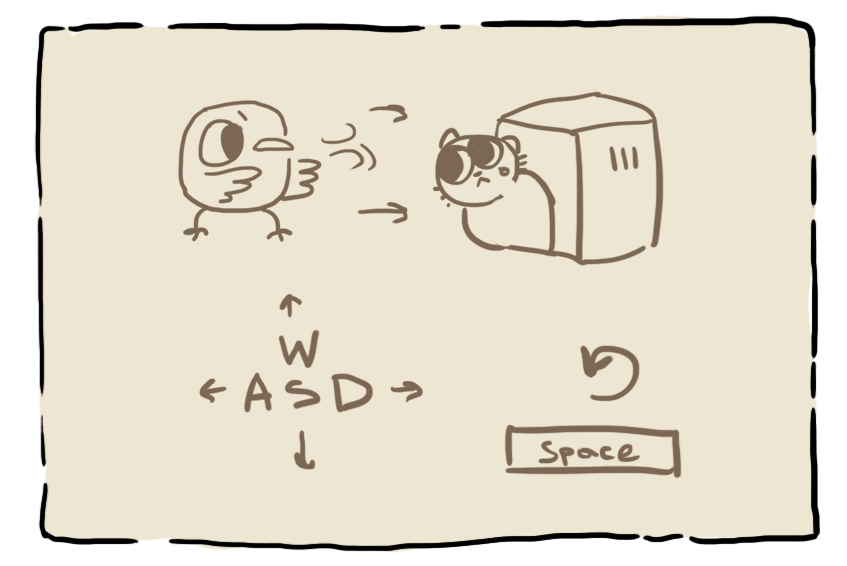 W
A S D
Space